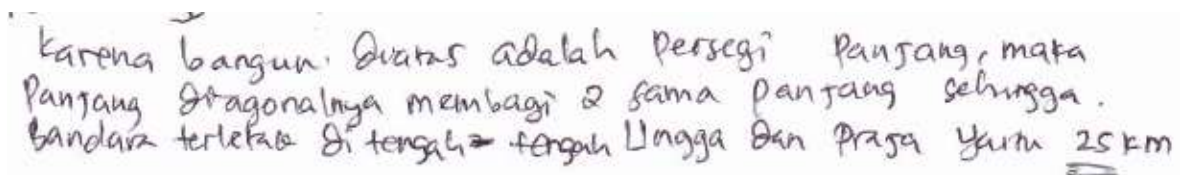 karena bangun. diatas adalah persegi panjang, maka
panjang diagonalnya membagi 2 sama panjang sehingga.
Bandara terletak di tengah - tengah Lingga dan Praja yaitu 25 km